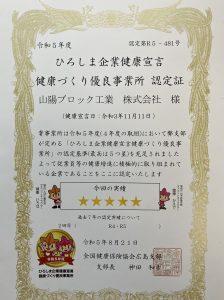 令和5年度
認定第R5-481号
ひろしま企業健康宣言
健康づくり優良事業所 認定証
山陽ブロック工業 株式会社 様
(健康宣言日:令和3年11月11日)
貴事業所は令和5年度(4年度の取組)において弊支部
が定める「ひろしま企業健康宣言健康づくり優良事業
所」の認定基準(最高は5つ星)を充足されました
よって従業員等の健康増進に積極的に取り組まれて
いる企業であることをここに認定いたします
今回の実績
★★★★★
過去7年の認定実績について
R4・R5
令和5年8月21日
全国健康保険協会広島支部
支部長 神田 和幸
ひろしま企業健康宣言
健康づくり優良事業所